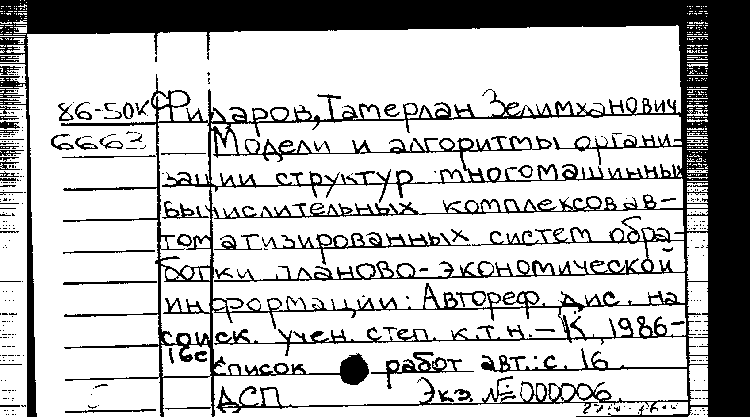 86-50к Фидаров, Тамерлан Зелимханович.
6663 Модели и алгоритмы органи-
зации структур многомашинных
вычислительных комплексов ав-
томатизированных систем обра-
ботки планово-экономической
информации: Автореф. дис. на
соиск. учен. степ. к.т.н. – К., 1986.-
16с
Список работ авт.: с. 16.
ДСП Экз. № 000006.